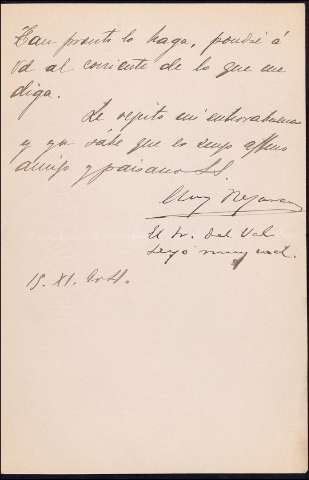 Tan pronto lo haga, pondré á
Vd al corriente de lo que me
diga.
Le repito mi enhorabuena
y ya sabe que es suyo affmo
amigo y paisano S.S.
El Sr. del Val
leyó muy mal.
15. XI.